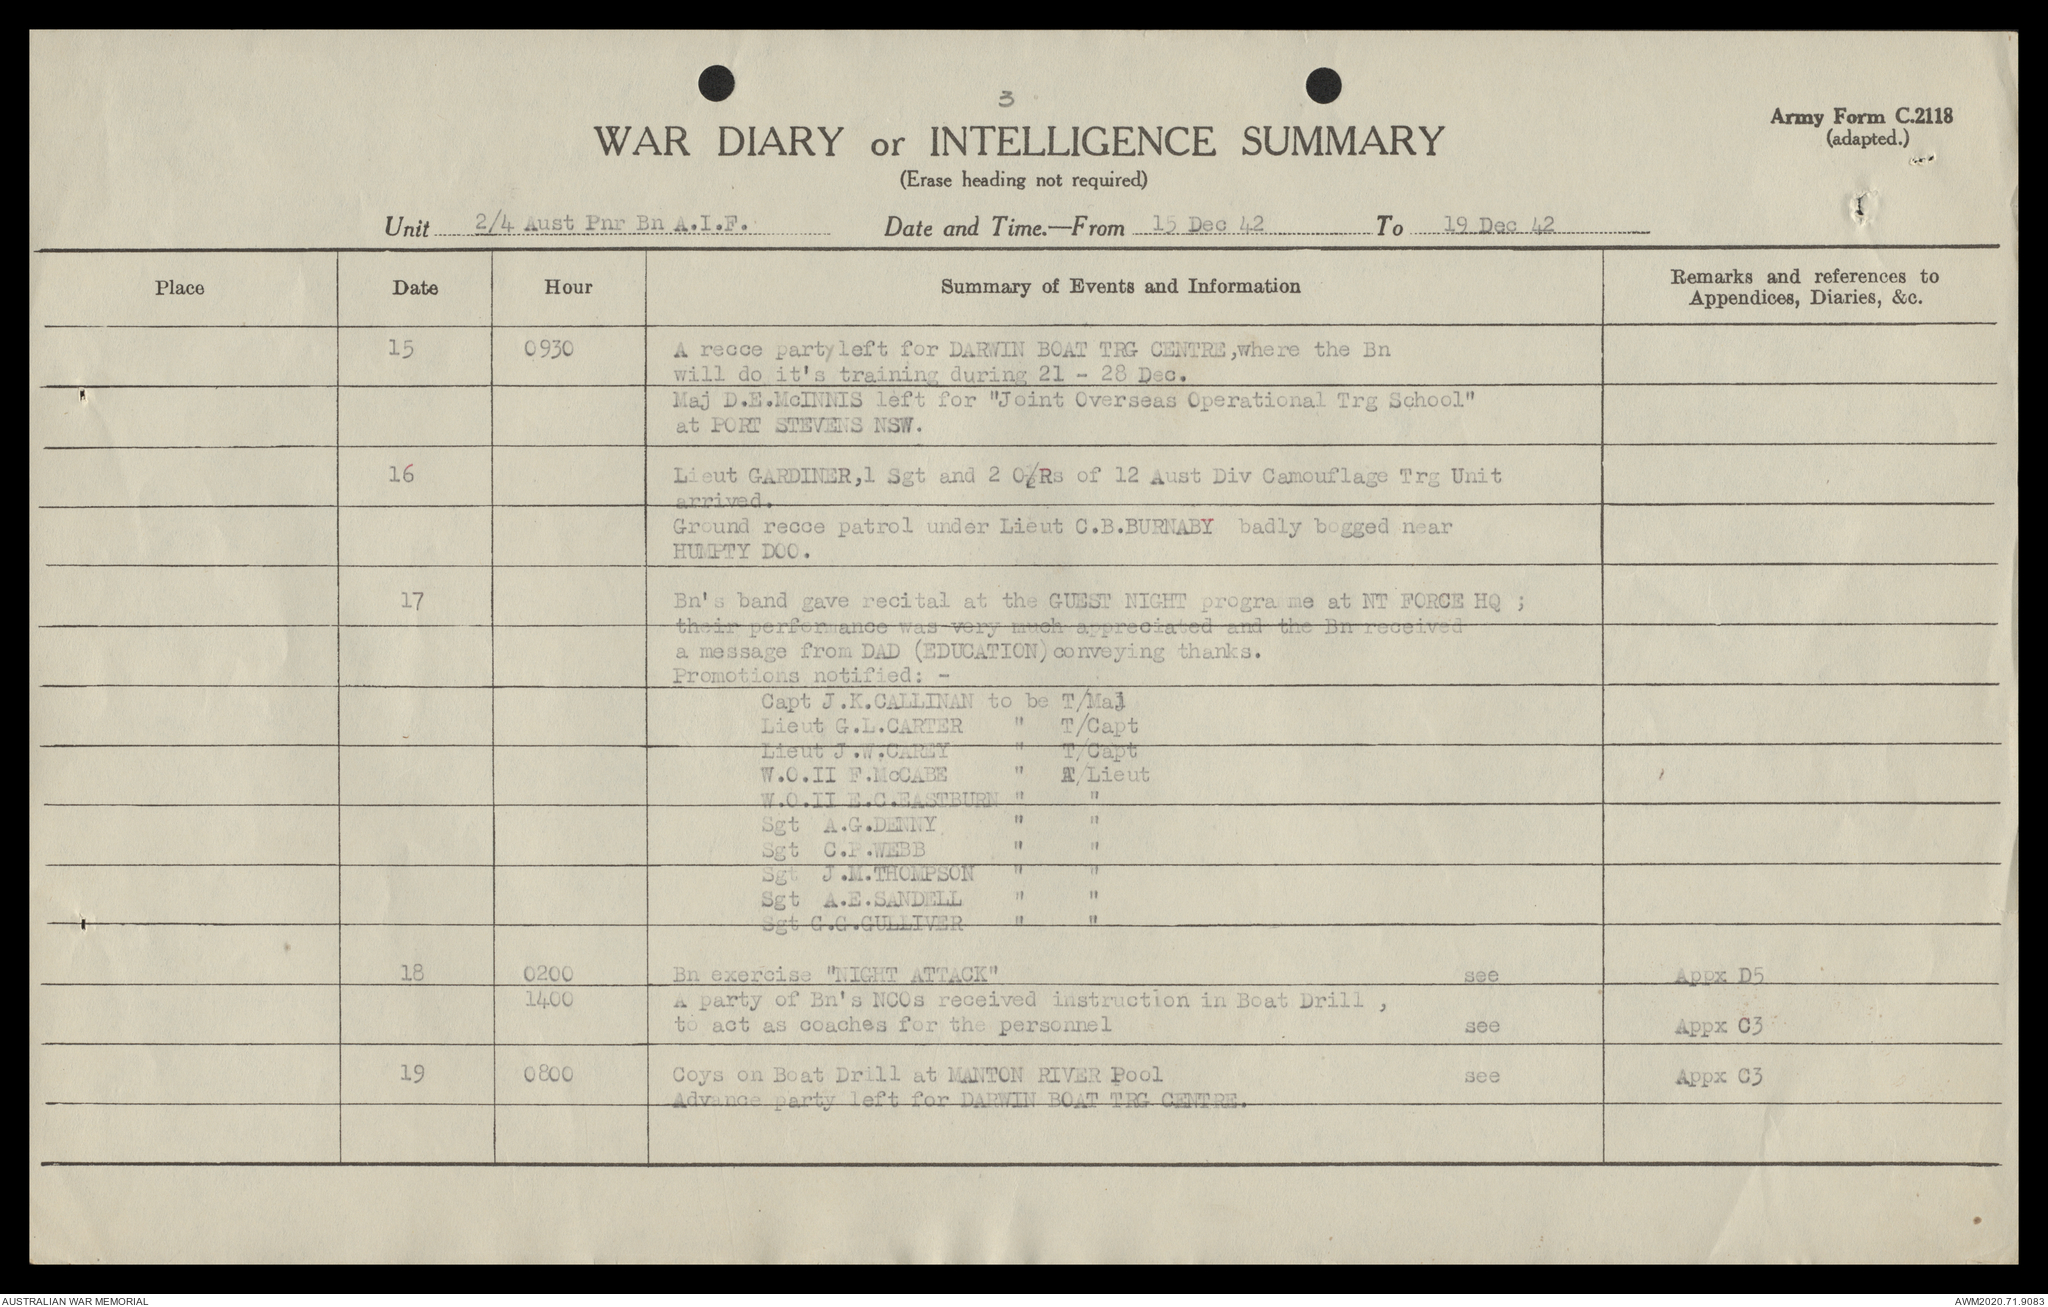 3
WAR DIARY or INTELLIGENCE SUMMARY
(Erase heading not required)
Army Form C.2118
(adapted.)
Unit 2/4 Aust Pnr Bn A.I.F. Date and Time.—From 15 Dec 42 To 19 Dec 42
Place Date Hour Summary of Events and Information Remarks and references to
Appendices, Diaries, &c.
15 0930 A recce party left for DARWIN BOAT TRG CENTRE,where the Bn
will do it's training during 21 - 28 Dec.
Maj D.E.McINNIS left for "Joint Overseas Operational Trg School"
at PORT STEVENS NSW.
16 Lieut GARDINER,1 Sgt and 2 O/Rs of 12 Aust Div Camouflage Trg Unit
arrived.
Ground recce patrol under Lieut C.B.BURNABY badly bogged near
HUMPTY DOO.
17 Bn's band gave recital at the GUEST NIGHT programme at NT FORCE HQ ;
their performance was very much appreciated and the Bn received
a message from DAD (EDUCATION)conveying thanks.
Promotions notified: -
Capt J.K.CALLINAN to be T/Maj
Lieut G.L.CARTER " T/Capt
Lieut J.W.CAREY " T/Capt
W.O.II F.McCABE " /Lieut
W.O.II E.C.EASTBURN " "
Sgt A.G.DENNY " "
Sgt C.P.WEBB " "
Sgt J.M.THOMPSON " "
Sgt A.E.SANDELL " "
Sgt G.G.GULLIVER " "
18 0200 Bn exercise "NIGHT ATTACK" see Appx D5
1400 A party of Bn's NCOs received instruction in Boat Drill ,
to act as coaches for the personnel see Appx C3
19 0800 Coys on Boat Drill at MANTON RIVER Pool see Appx C3
Advance party left for DARWIN BOAT TRG CENTRE.
AUSTRALIAN WAR MEMORIAL
AWM2020.71.9083